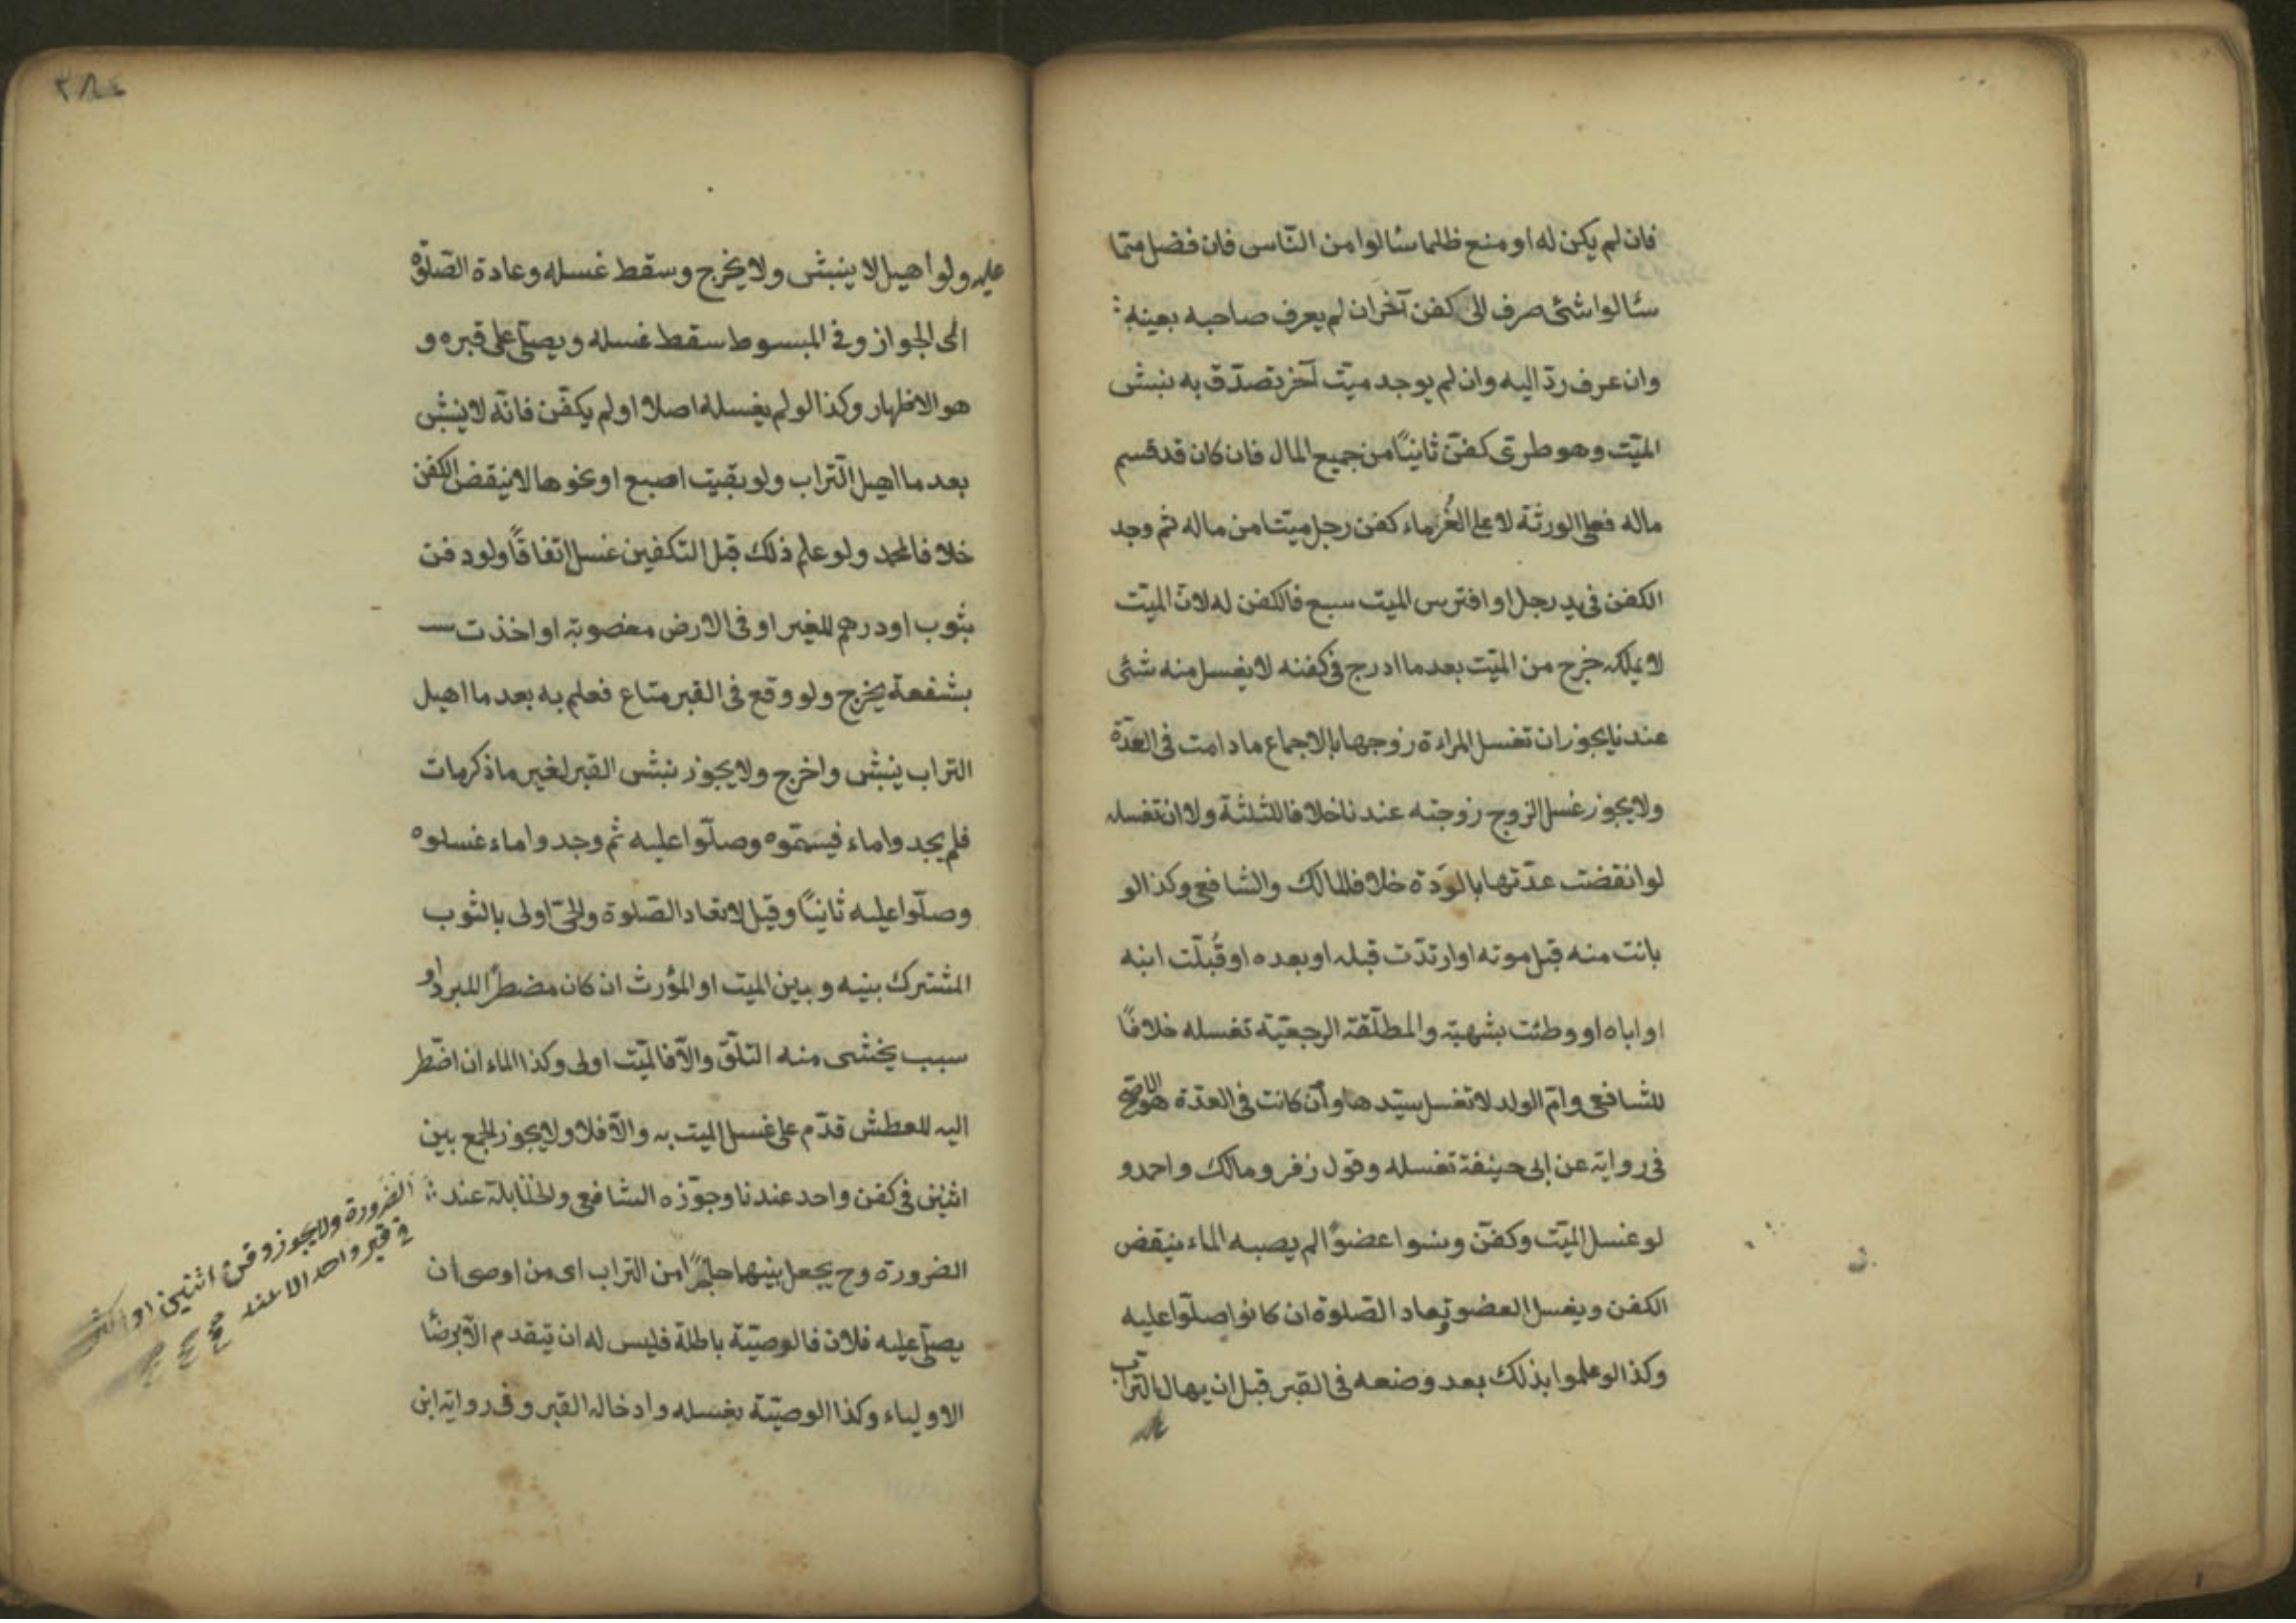 فان لم يكن له او منع ظلما سئالوا من النّاس فان فضل ممّا
سئالوا شئ صرف الى كفن آخر ان لم يعرف صاحبه بعينه
وان عرف ردّ اليه وان لم يوجد ميّت آخر تصدّق به نبش
الميّت وهو طرىّ كفّن ثانيًا من جميع المال فان كان قد قسم
ماله فعلى الورثة لا على الغُرماء كفن رجل ميّتا من ماله ثم وجد
الكفن فى يد رجل او افترس الميت سبع فالكفن له لان الميّت
لا يملكه خرج من الميّت بعد ما ادرج فى كفنه لا يغسل منه شئ
عندنا يجوز ان تغسل المراءة زوجها بالاجماع ما دامت فى العدّة
ولا يجوز غسل الزوج زوجته عندنا خلافا للثلثة ولا ان تغسله
لو انقضت عدّتها بالولادة خلافا لمالك والشافعى وكذا لو
بانت منه قبل موته او ارتدّت قبله او بعده او قُبلّت ابنه
او اباه او وطئت بشبهة والمطلّقة الرجعيّة تغسله خلافًا
للشافعى وامّ الولد لا تغسل سيّدها وان كانت فى العدّة هو الاصح
فى رواية عن ابى حنيفة تغسله وقول زفر ومالك واحمد و
لو غسل الميّت وكفّن ونسوا عضوًا لم يصبه الماء ينقض
الكفن ويغسل العضو وتعاد الصّلوة ان كانوا صلّوا عليه
وكذا لو علموا بذلك بعد وضعه فى القبر قبل ان يهال التراب
عليه ولو اهيل لا ينبش ولا يخرج وسقط غسله وعادة الصّلوة
الى الجواز وفى المبسوط سقط غسله ويصلّى على قبره و
هو الاظهار وكذا لو لم يغسله اصلا او لم يكفّن فانّه لا ينبش
بعد ما اهيل التراب ولو بقيت اصبع او نحوها لا ينقض الكفن
خلافا لمحمد ولو علم ذلك قبل التكفين غسل اتفاقًا ولو دفن
بثوب او درهم للغير او فى الارض مغصوبة او اخذت
بشفعة يخرج ولو وقع فى القبر متاع فعلم به بعد ما اهيل
التراب ينبش واخرج ولا يجوز نبش القبر لغير ما ذكر مات
فلم يجدوا ماء فيممّوه وصلّوا عليه ثم وجدوا ماء غسلوه
وصلّوا عليه ثانيًا وقيل لا تعاد الصّلوة والحىّ اولى بالثوب
المشترك بينه وبين الميت او المؤرث ان كان مضطرًّا للبرد او
سبب يخشى منه التلف والاّ فالميّت اولى وكذا الماء ان اضّطر
اليه للعطش قدّم على غسل الميت به والاّ فلا ولا يجوز الجمع بين
اثنين فى كفن واحد عندنا وجوّزه الشافعى والحنابلة عند
الضرورة وح يجعل بينهما حاجزًا من التراب اى من اوصى ان
يصلّى عليه فلان فالوصيّة باطلة فليس له ان يتقدم الاّ برضا
الاولياء وكذا الوصيّة بغسله وادخاله القبر وفى رواية ابن
الضرورة ولا يجوز دفن اثنين او اكثر
فى قبر واحد الا عند